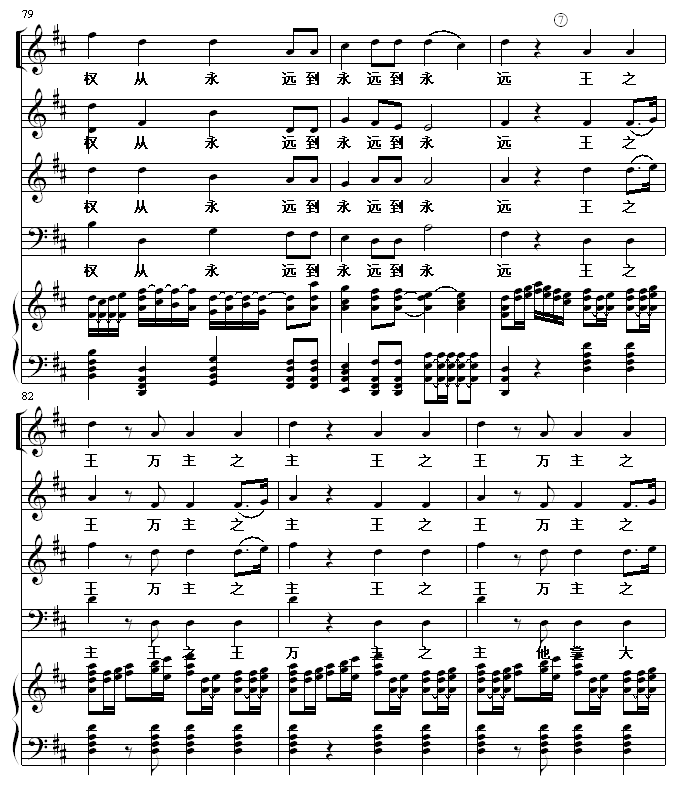 79
⑦
权 从 永 远 到 永 远 到 永 远 王 之
权 从 永 远 到 永 远 到 永 远 王 之
权 从 永 远 到 永 远 到 永 远 王 之
权 从 永 远 到 永 远 到 永 远 王 之
82
王 万 主 之 主 王 之 王 万 主 之
王 万 主 之 主 王 之 王 万 主 之
王 万 主 之 主 王 之 王 万 主 之
主 王 之 王 万 主 之 主 他 掌 大